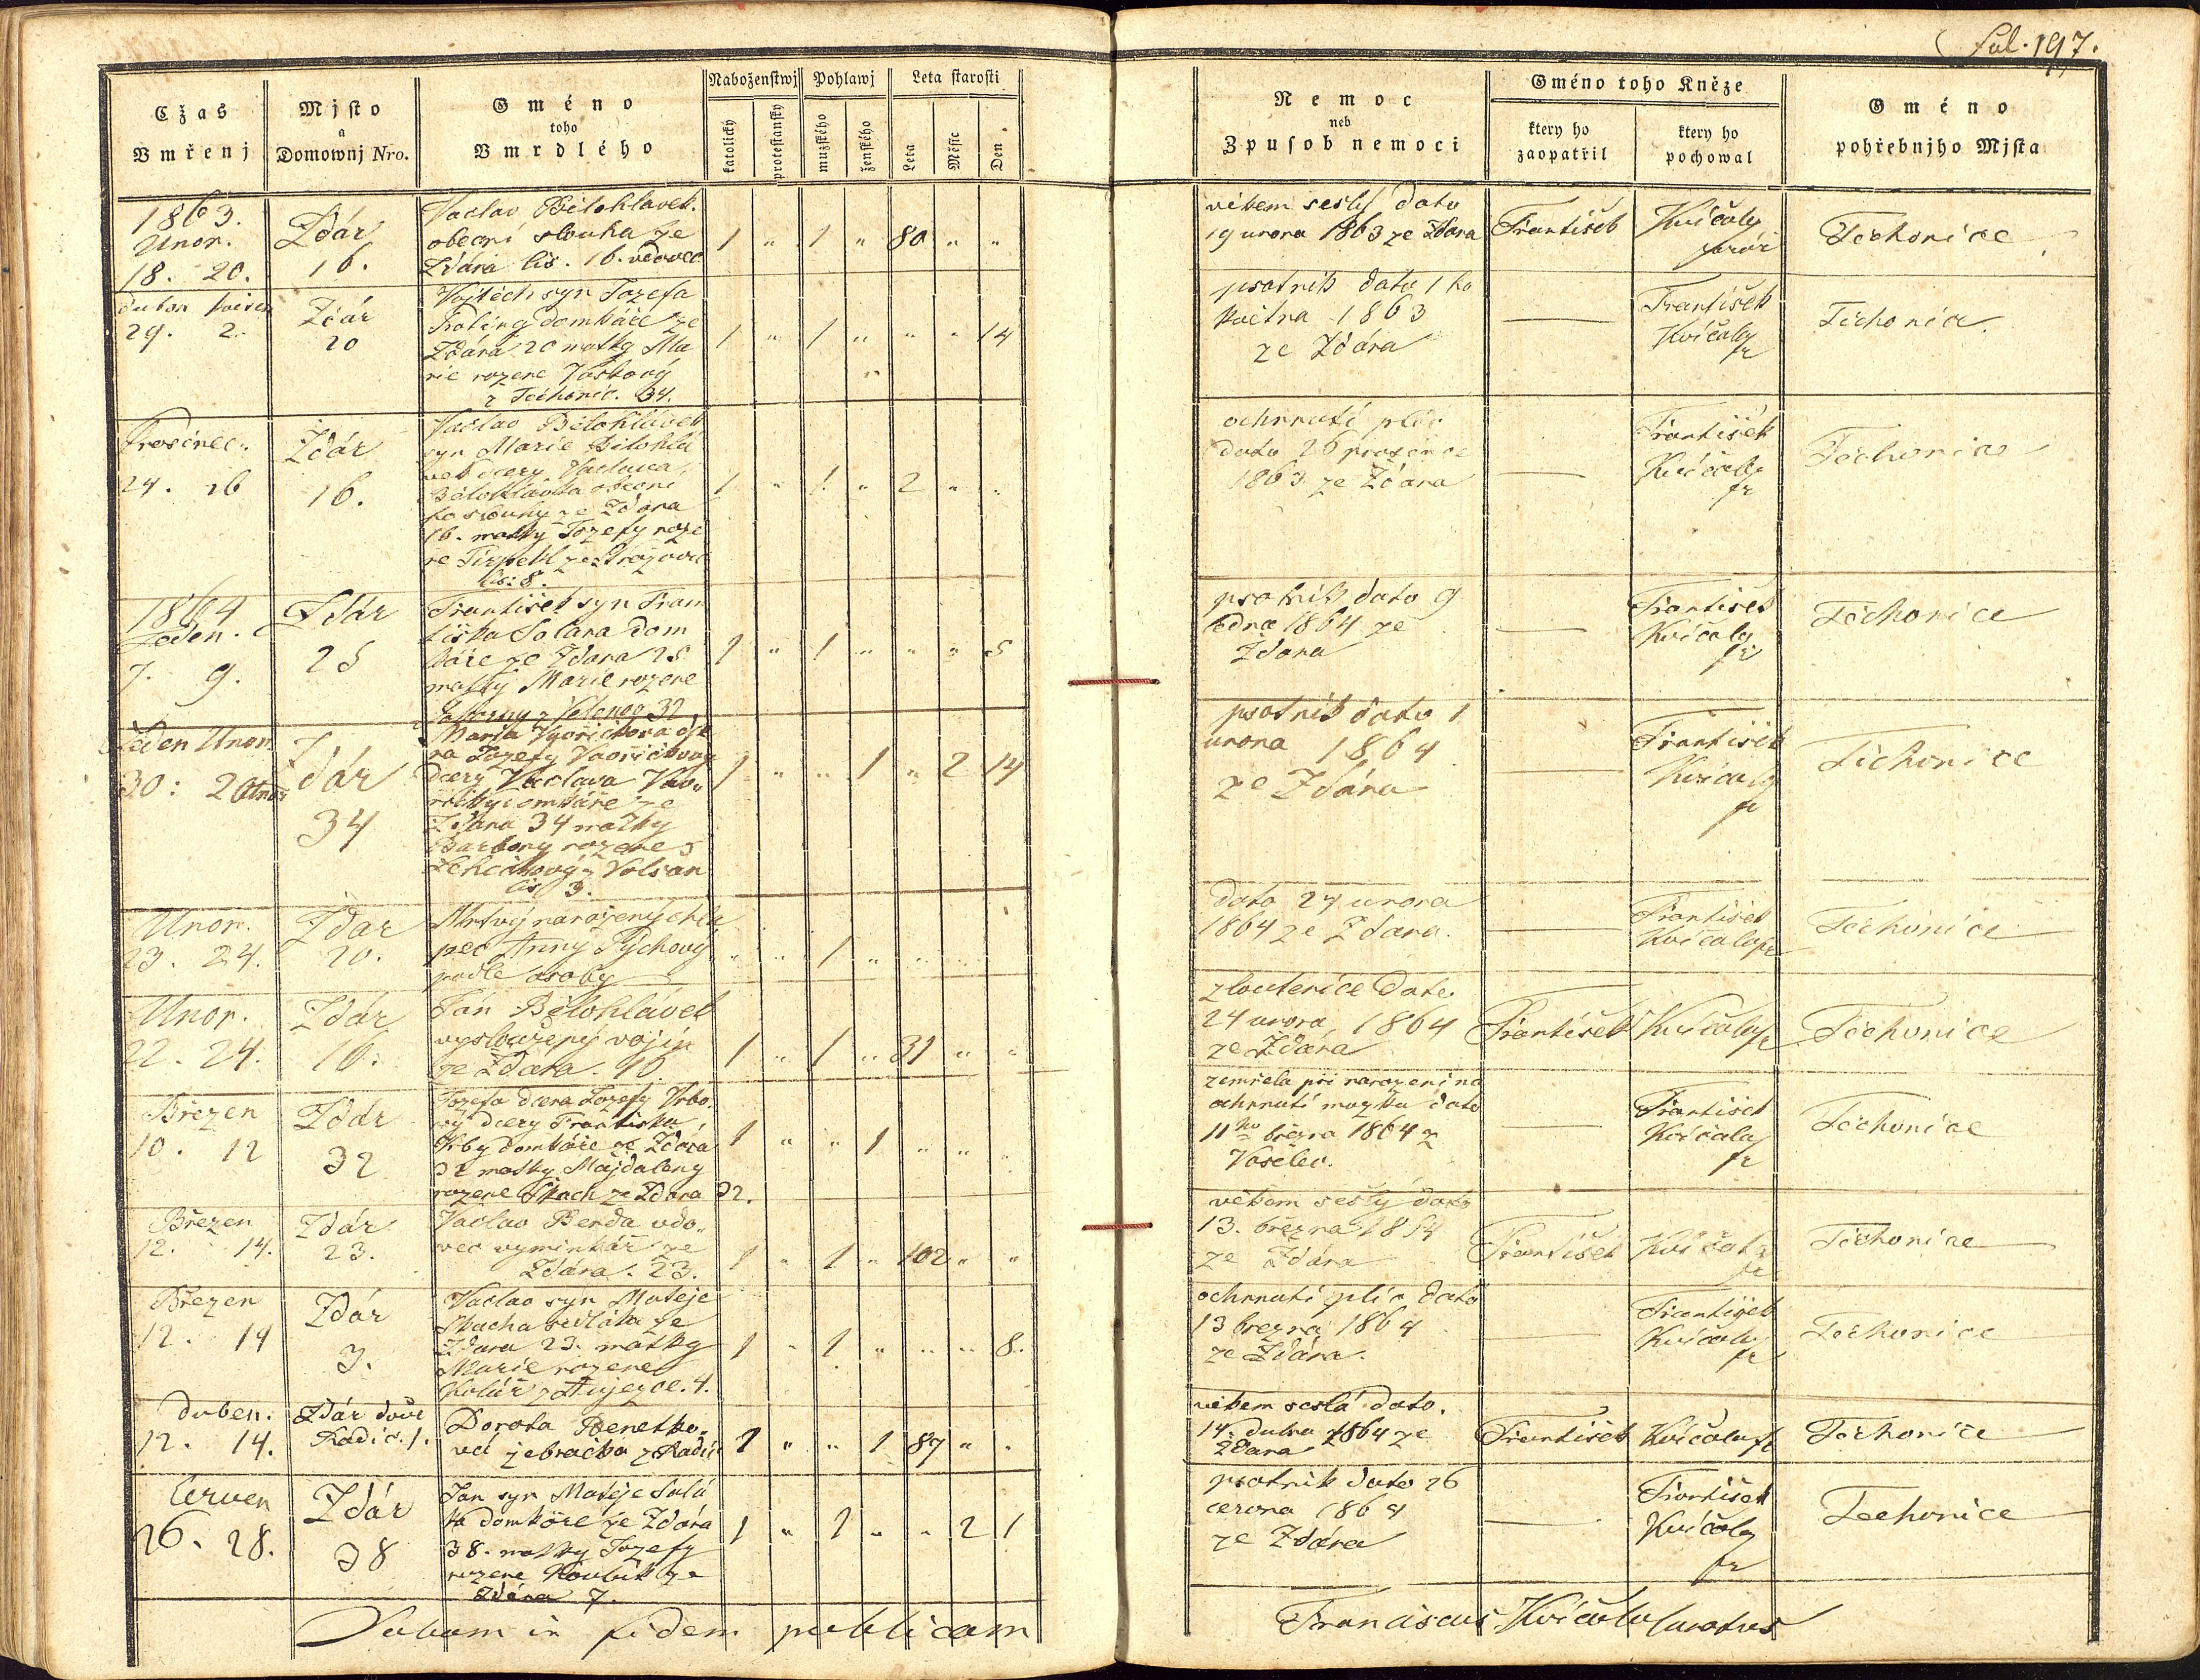 Fol. 197.
Cžas
Vmřenj
Mjsto
a
Domownj Nro.
Gméno
toho
Vmrdlého
Naboženstwj
katolický
protestanský
Pohlawj
mužského
ženského
Leta starosti
Leta
Měsíc
Den
Nemoc
neb
Zpusob nemoci
Gméno toho Kněze
ktery ho
zaopatřil
ktery ho
pochowal
Gméno
pohřebnjho Mjsta
1863.
Unor.
18. 20.
Ždár
16.
Vaclav Bělohlavek
obecní slouha ze
Ždára čis. 16. vdovec
1 " 1 " 80 " "
věkem sešlý dato
19 unora 1863 ze Ždara
František
Kvíčala
farář
Těchonice
Duben Květen
29. 2.
Ždár
20
Vojtěch syn Jozefa
domkáře ze
Ždára 20 matky Ma
rie rozene Vaskový
z Těchonic. 34.
1 " 1 " " " 14
psotník dato 1 ho
května 1863
ze Ždára
František
Kvíčala
fr
Těchonice.
Prosinec.
24. 26
Ždár
16.
Vaclav Bělohlavek
syn Marie Bělohla
vek dcery Vaclava
Bělohlavka obecní
ho slouhy ze Ždára
16. matky Jozefy roze
ne
čis: 8.
1 " 1 " 2 " "
ochrnutí plic
dato 26 prosince
1863 ze Ždára
František
Kvíčala
fr
Těchonice
1864
Leden.
7. 9.
Ždár
25
František syn Fran
tiška Solara dom
káře ze Ždara 25
matky Marie rozene
32
1 " 1 " " " 5
psotník dato 9
ledna 1864 ze
Ždara
František
Kvíčala
fr
Těchonice
Leden Unor
30: 2 Unor
Ždár
34
Maria dce
ra Jozefy
dcery Vaclava
domkáře ze
Ždara 34 matky
Barbory rozene
z Volšan
čis 3.
1 " " 1 " 2 14
psotník dato 1
unora 1864
ze Ždára
František
Kvíčala
fr
Těchonice
Unor.
23. 24.
Ždar
20.
Mrtvý narozený chla
pec Anny Pychový
podle osoby
" " 1 " " " "
dato 24 unora
1864 ze Ždara.
František
Kvíčala fr
Těchonice
Unor.
22. 24.
Ždár
16.
Ján Bělohlávek
vysloužený vojín
ze Ždára. 16
1 " 1 " 31 " "
zloutenice dato.
24 unora, 1864
ze Ždára
František
Kvíčala fr
Těchonice
Březen
10. 12
Ždár
32
Jozefa dcera Jozefy Vrbo
vý dcery Františka
Vrby domkáře ze Ždára
32 matky Majdaleny
rozene Skach ze Ždara 32.
1 " " 1 " " "
zemřela při narozeni na
ochrnutí mozku dato
11ho března 1864 z
František
Kvíčala
fr
Těchonice
Březen
12. 14.
Ždár
23.
Vaclav Benda vdo
vec vyminkář ze
Ždára. 23.
1 " 1 " 102 " "
věkem sešlý dato
13. března 1864
ze Ždára
František
Kvíčala
fr
Těchonice
Březen
12. 14
Ždár
3.
Vaclav syn Matěje
Skacha sedláka ze
Ždara 23. matky
Marie rozene
Kolář z Aujezce. 4.
1 " 1 " " " 8.
ochrnutí plic dato
13 března 1864
ze Ždára.
František
Kvíčala
fr
Těchonice
Duben.
12. 14.
Ždár dvůr
Kadic. 1.
Dorota Benetko
va žebračka z Kadic
1 " " 1 87 " "
věkem sešlá dato.
14. dubna 1864 ze
Ždara
František
Kvíčala fr
Těchonice
Červen
26. 28.
Ždár
38
Jan syn Matěje
domkáře ze Ždára
38. matky Jozefy
rozene Koubek ze
Ždára 7.
1 " 1 " " 2 1
psotník dato 26
června 1864
ze Ždára
František
Kvíčala
fr
Těchonice
Datum in fidem publicam
Franciscus Kvíčala Curatus